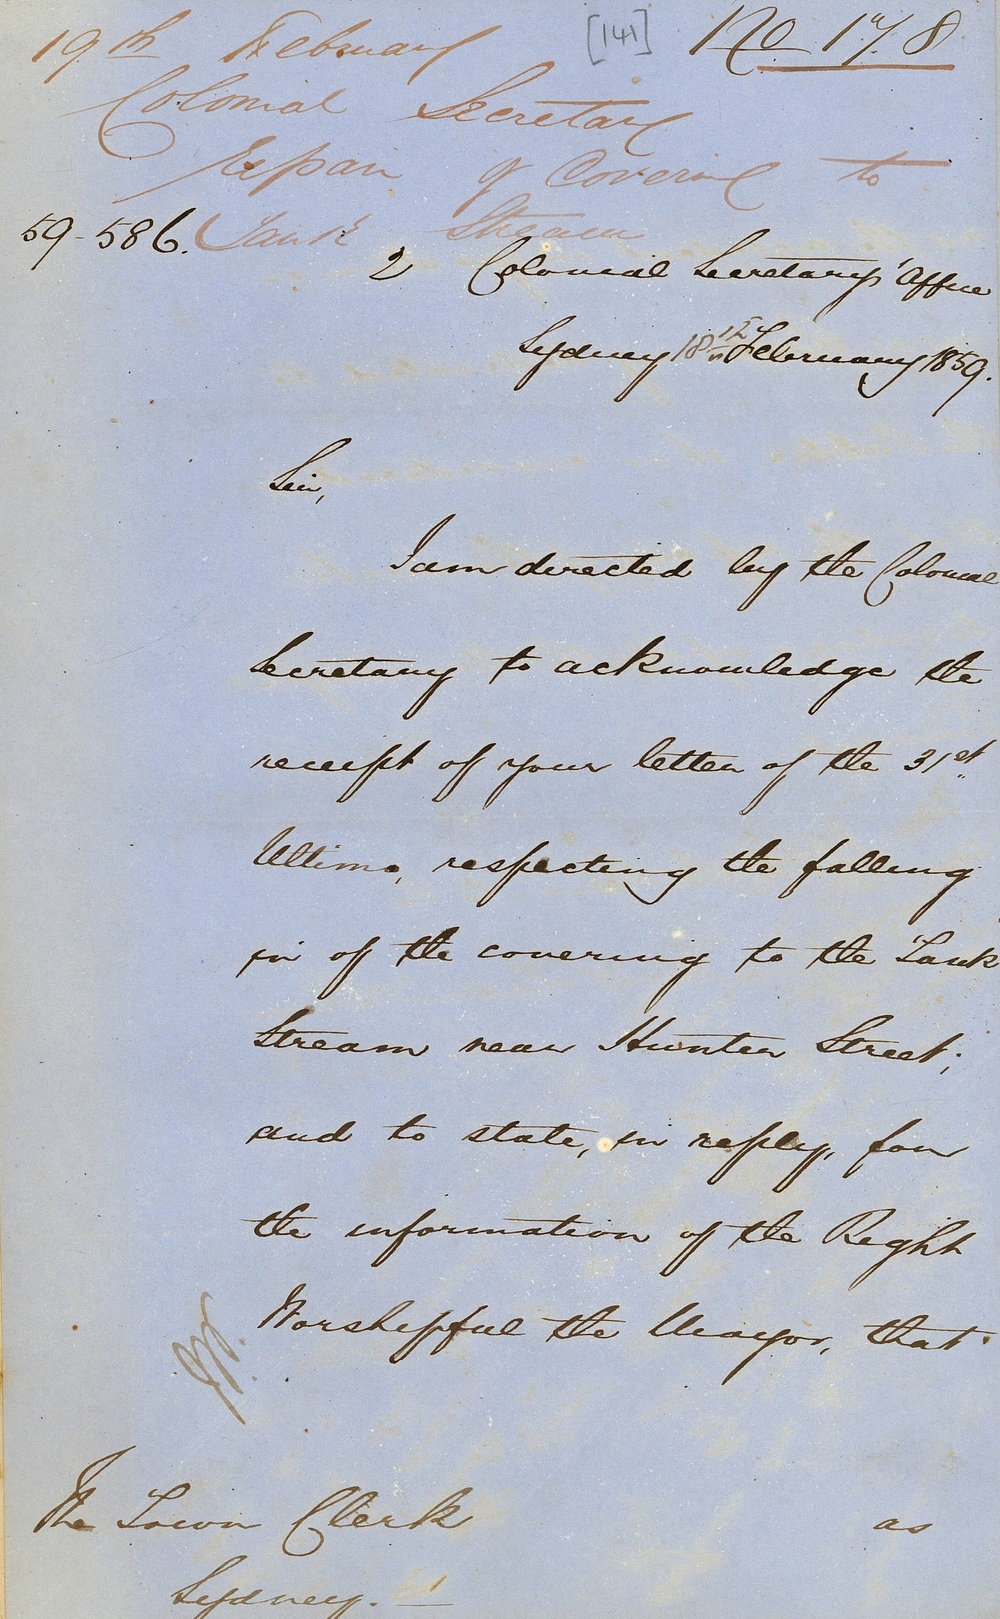 19th February [141] No 178
Colonial Secretary
Repair of Covering to
59-586. Tank Stream
2 Colonial Secretary's Office
Sydney 18th February 1859.
Sir,
I am directed by the Colonial
Secretary to acknowledge the
receipt of your letter of the 31st
Ultimo, respecting the falling
in of the covering to the Tank
Stream near Hunter Street;
and to state, in reply, for
the information of the Right
Worshipful the Mayor, that
The Town Clerk as
Sydney.